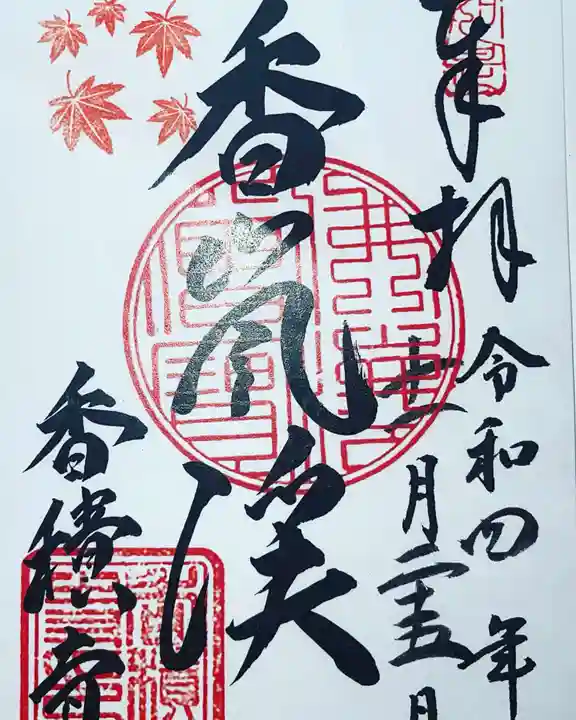 奉拝
令和四年
十一月二十五日
香嵐渓
香積寺